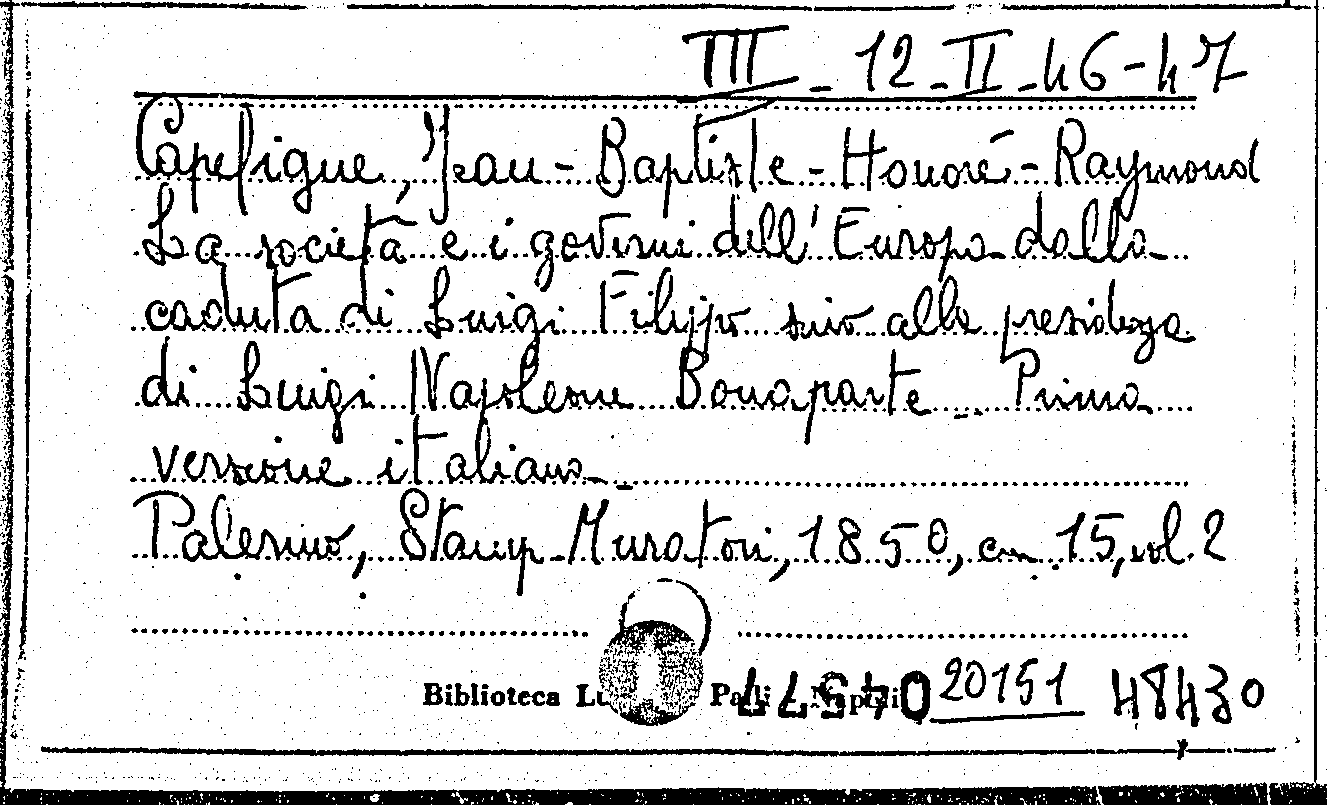 III - 12 - II - 46 - 47
Capefigue, Jean-Baptiste-Honoré-Raymond
La società e i governi dell'Europa dalla
caduta di Luigi Filippo sino alla presidenza
di Luigi Napoleone Bonaparte - Prima
versione italiana -
Palermo, Stamp. Muratori, 1850, cm. 15, vol. 2
Biblioteca 20151 48430